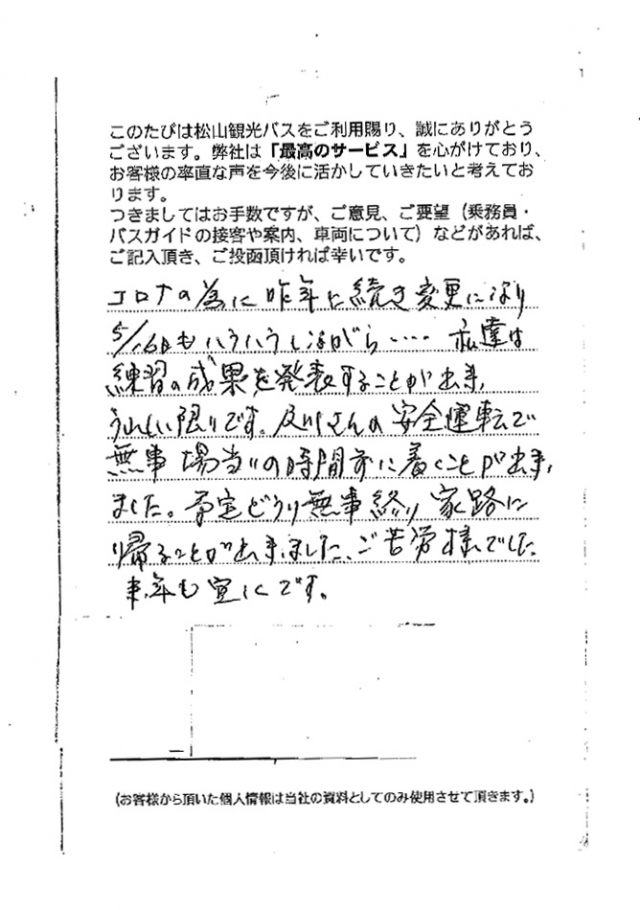 このたびは松山観光バスをご利用賜り、誠にありがとう
ございます。弊社は「最高のサービス」を心がけており、
お客様の率直な声を今後に活かしていきたいと考えてお
ります。
つきましてはお手数ですが、ご意見、ご要望（乗務員・
バスガイドの接客や案内、車両について）などがあれば、
ご記入頂き、ご投函頂ければ幸いです。
コロナの為に昨年に続き変更になり
5/16日もハラハラしながら‥‥ 私達は
練習の成果を発表することが出来、
うれしい限りです。及川さんの安全運転で
無事 場当りの時間前に着くことが出来
ました。予定どうり無事終り 家路に
帰ることが出来ました、ご苦労様でした
来年も宜しくです。
（お客様から頂いた個人情報は当社の資料としてのみ使用させて頂きます。）